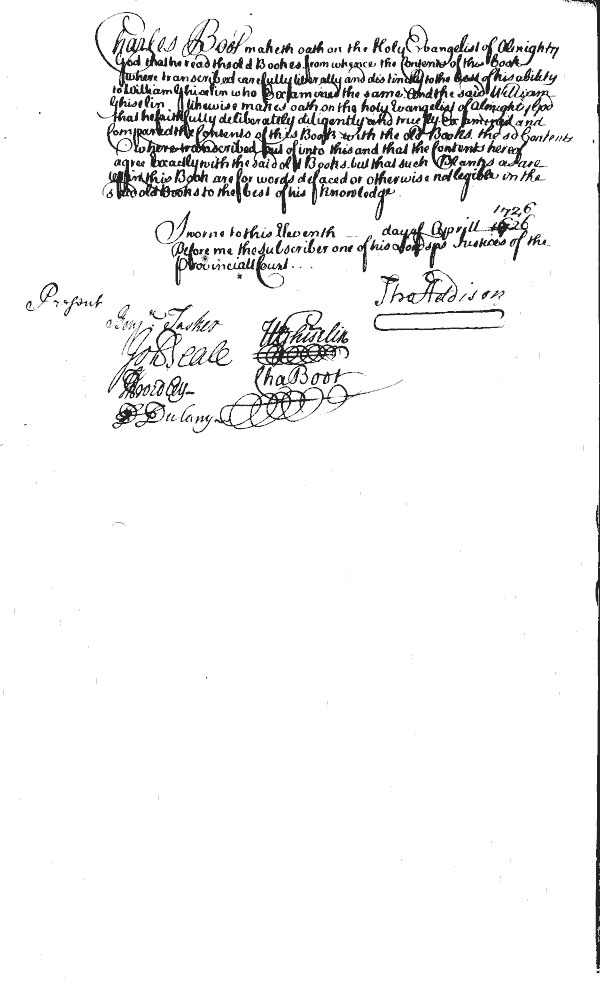 Charles Boot maketh oath on the Holy Evangelist of Almighty
God that he read the old Bookes from whence the Contents of this Book
where transcribed carefully literally and distinctly to the best of his ability
to William Ghiselin who Examined the same And the said William
Ghiselin likewise makes oath on the holy Evangelist of Almighty God
that he faithfully deliberately diligently and truely Examined and
Compared the Contents of this Book with the old Books the sd Contents
where transcribed out of into this and that the Contents hereof
agree exactly with the said old Books but that such Blanks as are
left in this Book are for words defaced or otherwise not legible in the
said old Books to the best of his Knowledge
1726
Sworne to this Eleventh day of Aprill 1626
Before me the Subscriber one of his Lordsps Justices of the
Provinciall Court
Present
Tho Addison
Benj.n Tasker
W Ghiselin
Jon Beale
Cha Boot
D Dulany